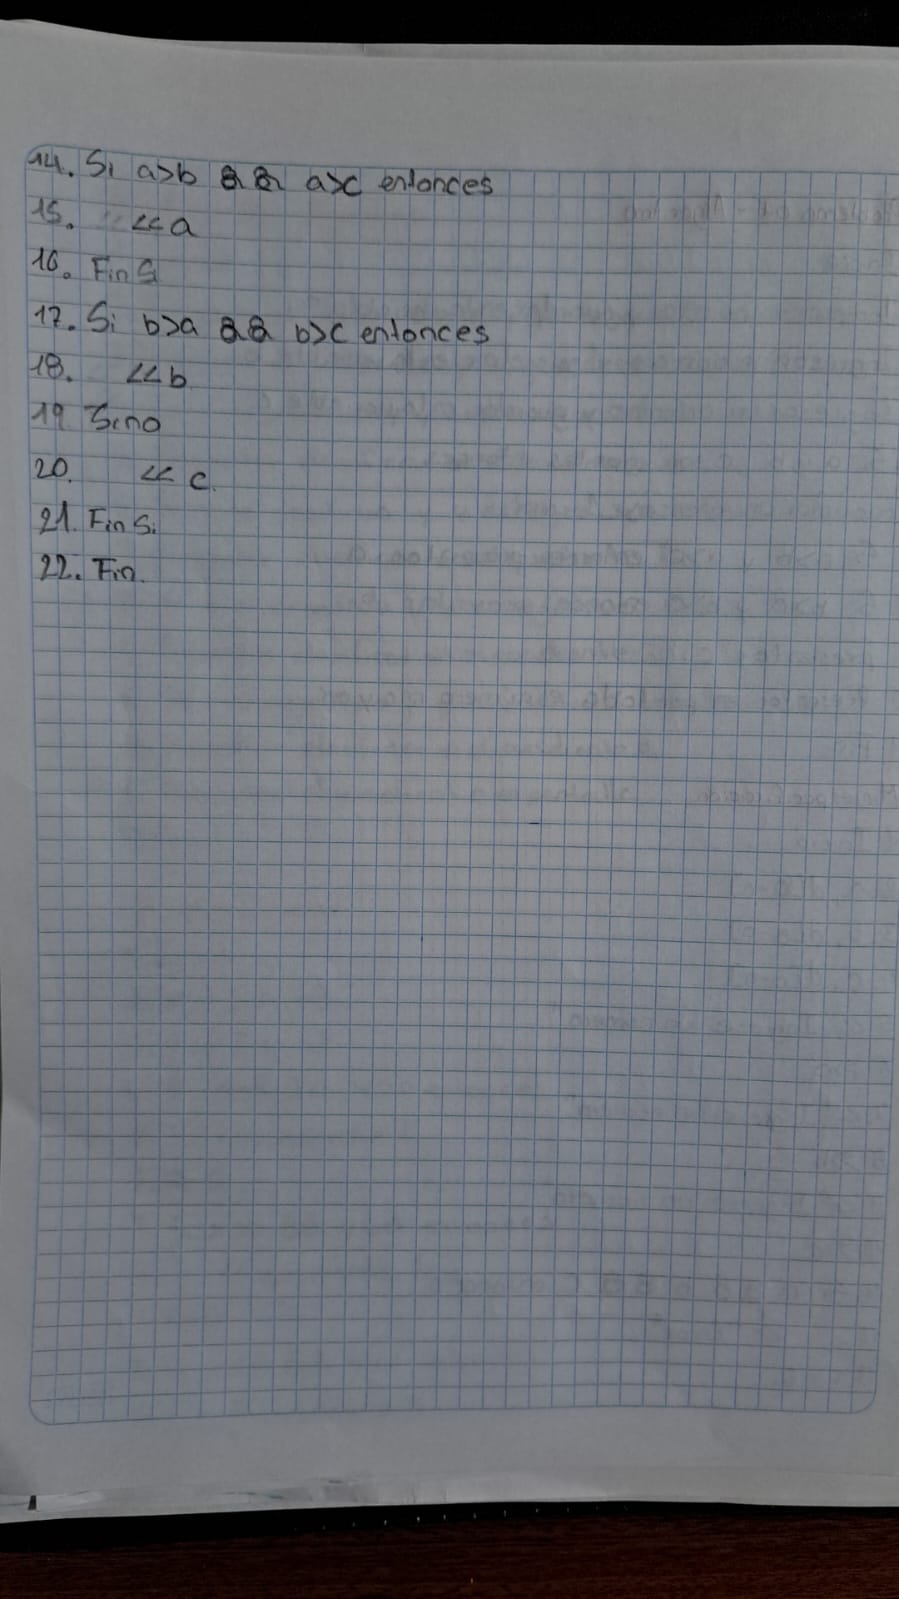 14. Si a>b && a>c entonces
15. << a
16. Fin Si
17. Si b>a && b>c entonces
18. << b
19. Sino
20. << c.
21. Fin Si.
22. Fin.